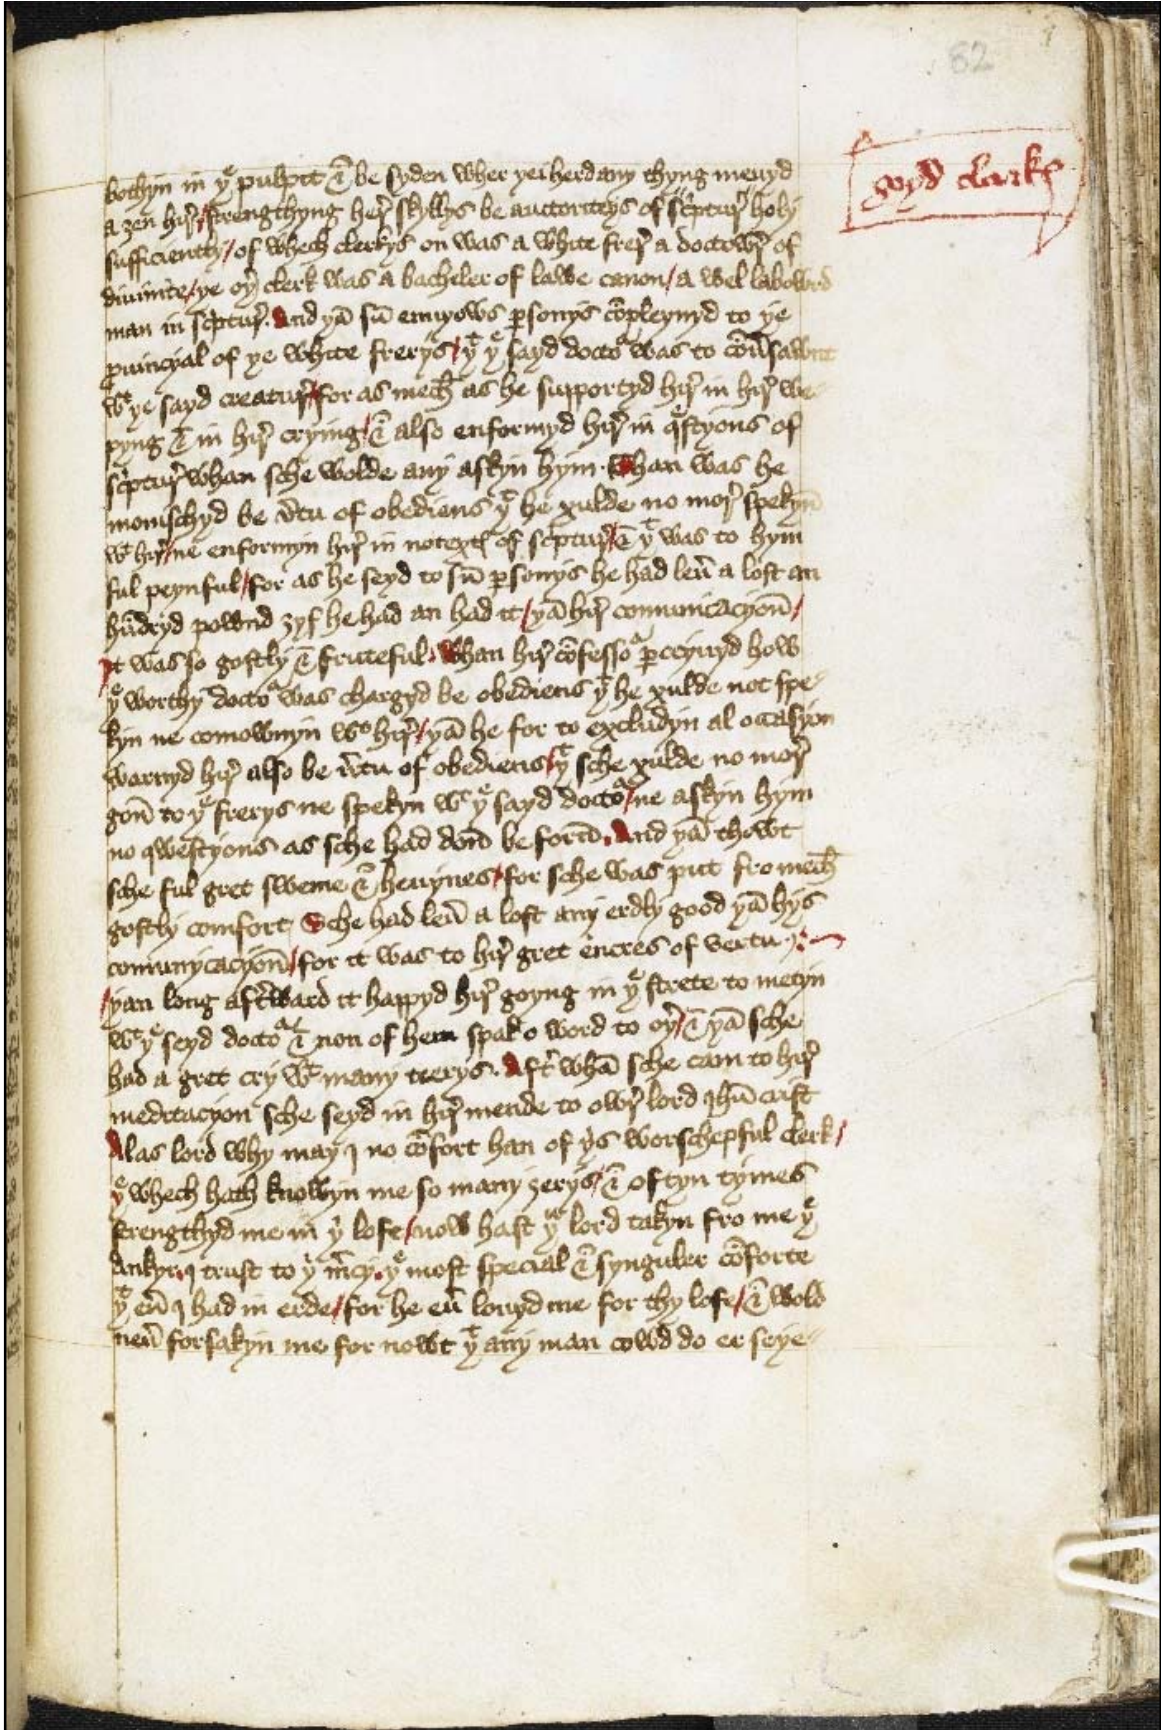 82
bothyn in yͤ pulpit & be syden wher yei herd any thyng meuyd
a ȝen hir̛ / strengthyng her̛ skyllys be auctoriteys of sc͛ptur̛ holy
sufficiently / of whech clerkys on was a white frer̛ a doctowr̛ of
diuinite / ye oy͛ clerk was a bacheler of lawe canon / a wel labowrd
man in sc͛ptur̛. And yā sū enuyows ꝑsonys cōpleynyd to ye
ꝓuincyal of ye white frerys / yͭ yͤ sayd doctoͬ was to cōu͛sawnt
wͭ ye sayd creatur̛ / for as mech̄ as he supportyd hir̛ in hir̛ we
pyng & in hir̛ crying / & also enformyd hir̛ in qͣstyons of
sc͛ptur̛ whan sche wolde any askyn hym. Than was he
monischyd be v͛tu of obediens yͭ he xulde no mor̛ spekyn̄
wͭ hir̛ / ne enformyn hir̛ in no textꝭ of sc͛ptur̛ / & yͭ was to hym
ful peynful / for as he seyd to sū ꝑsonys he had leu͛ a lost an
hūdryd pownd ȝyf he had an had it / yā hir̛ comunicacyon̄ /
it was so gostly & fruteful. Whan hir̛ cōfessoͬ ꝑceyuyd how
yͤ worthy doctoͬ was chargyd be obediens yͭ he xulde not spe
kyn ne comownyn wͭ hir̛ / yā he for to excludyn al occasyon
warnyd hir̛ also be v͛tu of obediens / yͭ sche xulde no mor̛
gon̄ to yͤ frerys ne spekyn wͭ yͤ sayd doctoͬ / ne askyn hym
no qwestyons as sche had don̄ be forn̄. And yā thowt
sche ful gret sweme & heuynes / for sche was put fro mech̄
gostly comfort / Sche had leu͛ a lost any erdly good yā hys
comunycacyon̄ / for it was to hir̛ gret encres of vertu.
yan long aft͛ward it happyd hir̛ goyng in yͤ strete to metyn
wͭ yͤ seyd doctoͬ & non of hem spak o word to oy͛ / & yā sche
had a gret cry wͭ many teerys. Aft͛ whā sche cam to hir̛
meditacyon sche seyd in hir̛ mende to owr̛ lord ihū crist
Alas lord why may I no cōfort han of yis worschepful clerk /
yͤ whech hath knowyn me so many ȝerys / & oftyn tymes
strengthyd me in yi lofe / now hast yͧ lord takyn fro me yͤ
Ankyr. I trust to yi m͛cy. yͤ most special & synguler cōforte
yͭ eu͛ I had in erde / for he eu͛ louyd me for thy lofe / & wold
neu͛ forsakyn me for nowt yͭ any man cowd do er seye